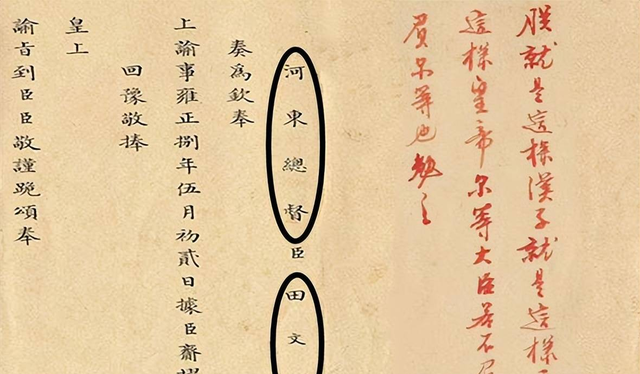 朕就是這樣漢子就是這樣
這樣皇帝尔等大臣若不
負尔等也勉之
河東總督臣田文
奏為欽奉
上諭事雍正捌年伍月初貳日據臣齎
回豫敬捧
皇上
諭旨到臣臣敬謹跪頌奉